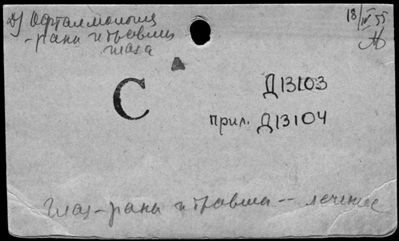 Офталмология
-рани и травми
глаза
18/IV 55
С
Д13103
прил. Д13104
Глаз-рани и травма -- лечение